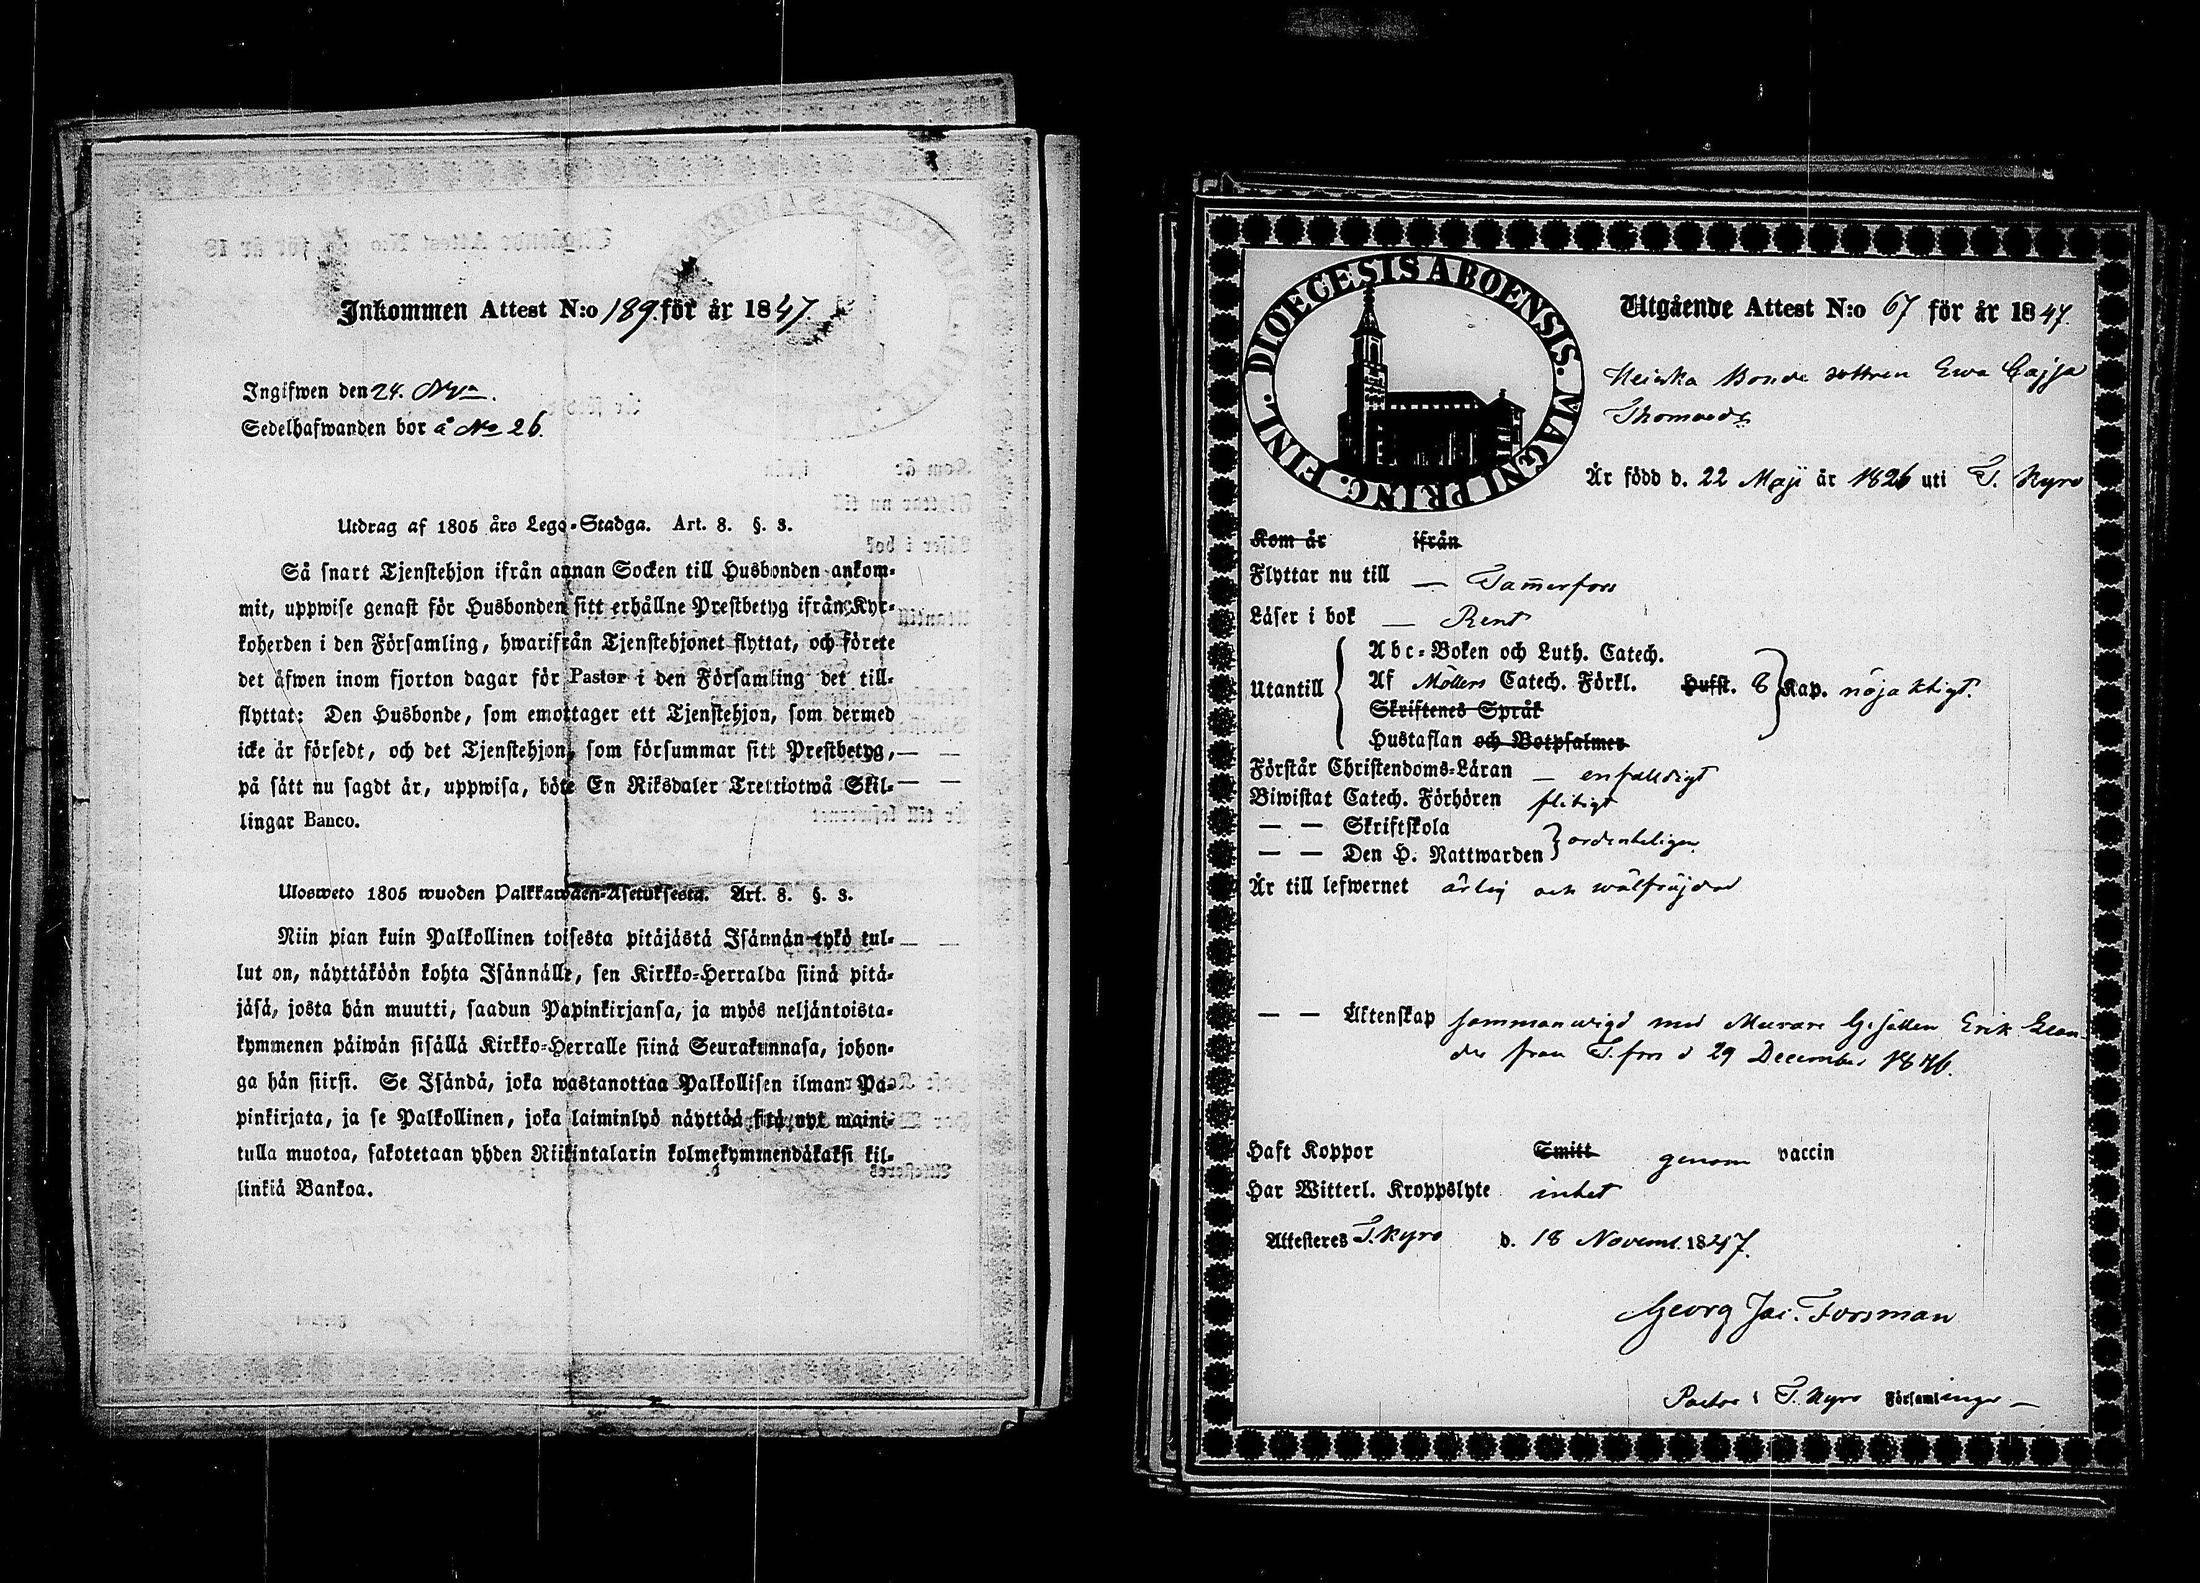 Inkommen Attest N:o 189. för år 1847.
Ingifwen den 24.
Sedelhafwanden bor å No 26.
Utdrag af 1805 års Lego-Stadga. Art. 8. §. 3.
Så snart Tjenstehjon ifrån annan Socken till Husbonden ankom-
mit, uppwise genast för Husbonden sitt erhållne Prestbetyg ifrån Kyr-
koherden i den Församling, hwarifrån Tjenstehjonet flyttat, och förete
det äfwen inom fjorton dagar för Pastor i den Församling det till-
flyttat: Den Husbonde, som emottager ett Tjenstehjon, som dermed
icke är försedt, och det Tjenstehjon, som försummar sitt Prestbetyg,
på sätt nu sagdt är, uppwisa, böte En Riksdaler Trettiotwå Skil-
lingar Banco.
Ulosweto 1805 wuoden Palkkawäen-Asetuksesta. Art. 8. §. 3.
Niin pian kuin Palkollinen toisesta pitäjästä Isännän tykö tul-
lut on, näyttäköön kohta Isännälle, sen Kirkko-Herralda siinä pitä-
jäsä, josta hän muutti, saadun Papinkirjansa, ja myös neljäntoista-
kymmenen päiwän sisällä Kirkko-Herralle siinä Seurakunnasa, johon-
ga hän siirsi. Se Isändä, joka wastanottaa Palkollisen ilman Pa-
pinkirjata, ja se Palkollinen, joka laiminlyö näyttää sitä nyt maini-
tulla muotoa, sakotetaan yhden Riikintalarin kolmekymmendäkaksi kil-
linkiä Bankoa.
DIOECESIS ABOENSIS. MAGNI PRINC. FINL.
Utgående Attest N:o 67 för år 1847.
Heiska Bonde dottren Ewa Cajsa
Thomasdr
Är född d. 22 Maji år 1826 uti T. Kyro
Kom år ifrån
Flyttar nu till — Tam̄erfors
Läser i bok — Rent
Abc-Boken och Luth. Catech.
Utantill Af Möllers Catech. Förkl. Husst. 8 Kap. nöjaktigt.
Skriftenes Språk
Hustaflan och Botpsalmer
Förstår Christendoms-Läran — enfalldigt
Biwistat Catech. Förhören flitigt
— — Skriftskola
— — Den H. Nattwarden } ordenteligen
Är till lefwernet ärlig och wälfräjdad
— — Äktenskap sammanwigd med Murare Gesällen Erik Elan-
der från T.fors d 29 December 1846.
Haft Koppor Smitt genom vaccin
Har Witterl. Kroppslyte intet
Attesteres T.Kyro d. 18 Novemb. 1847.
Georg Jac. Forsman
Pastor i T. Kyro Församlings —